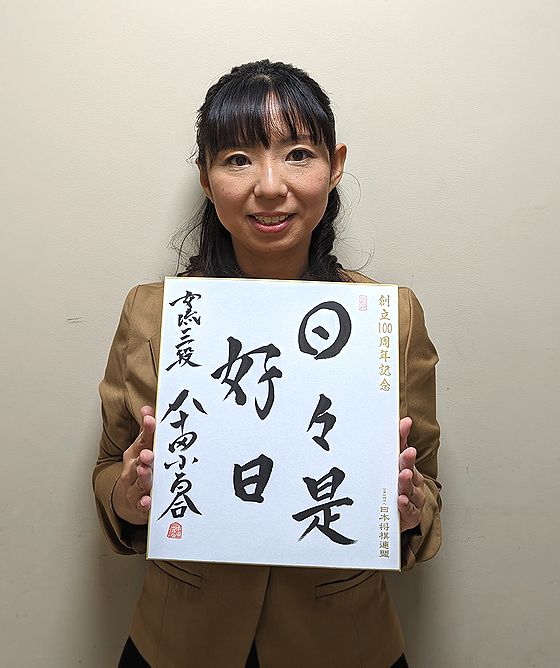 創立100周年記念
日々是
好日
女流三段
日本将棋連盟